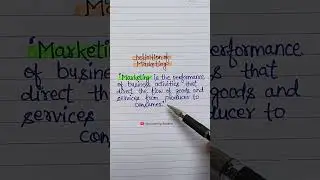 Definition of
Marketing?
"Marketing is the performance
of business activities that
direct the flow of goods and
services from producer to
consumer"
"Marketing
of busine
direct th
services
erformance
s that
goods and
ducer to